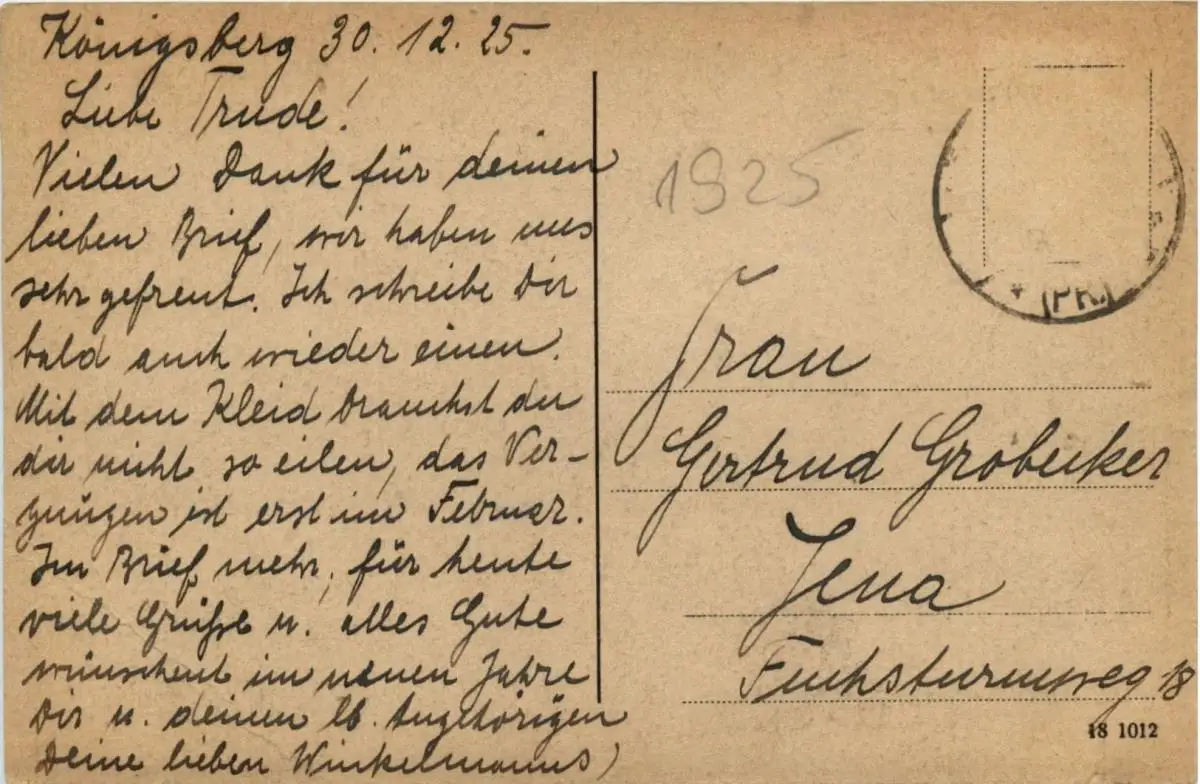 Königsberg 30. 12. 25.
Liebe Trude!
Vielen Dank für deinen
lieben Brief, wir haben uns
sehr gefreut. Ich schreibe Dir
bald auch wieder einen.
Mit dem Kleid brauchst du
dir nicht so eilen, das Ver-
gnügen ist erst im Februar.
Im Brief mehr, für heute
viele Grüße u. alles Gute
wünschend im neuen Jahre
Dir u. deinen lb. Angehörigen
Deine lieben Winkelmanns
1925
* (PR.)
Frau
Gertrud Grobecker
Jena
Fuchsturmweg 18
18 1012